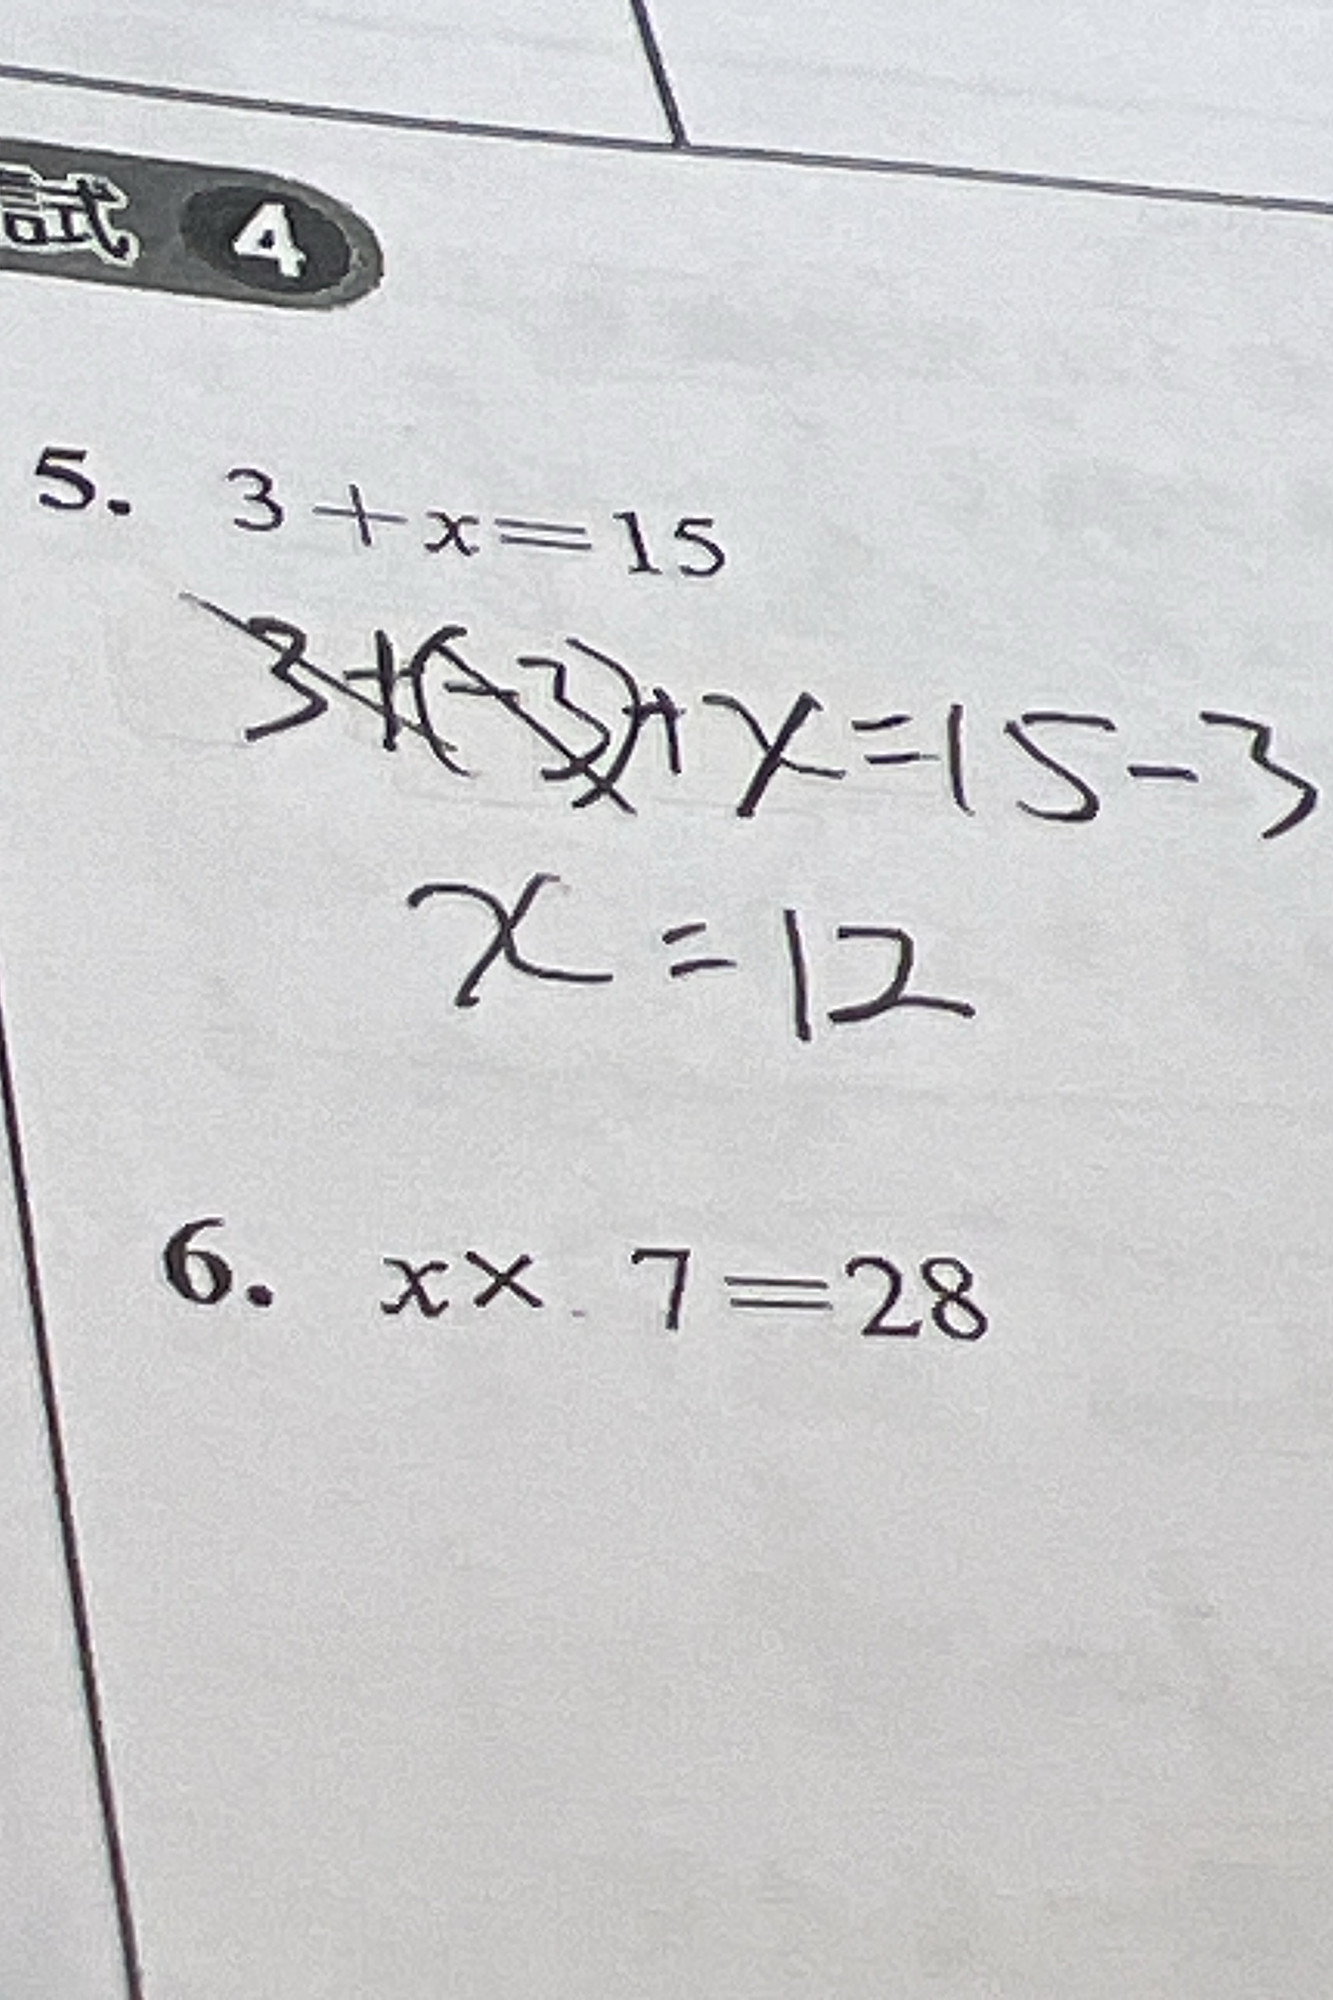 試 4
5. 3+x=15
3+(-3)+x=15-3
x=12
6. x× 7=28